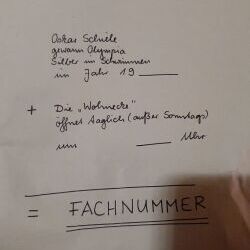 Oskar Schiele
gewann Olympia
Silber im Schwimmen
im Jahr 19____
+ Die „Wohnecke"
öffnet täglich (außer Sonntags)
um ____ Uhr
= FACHNUMMER